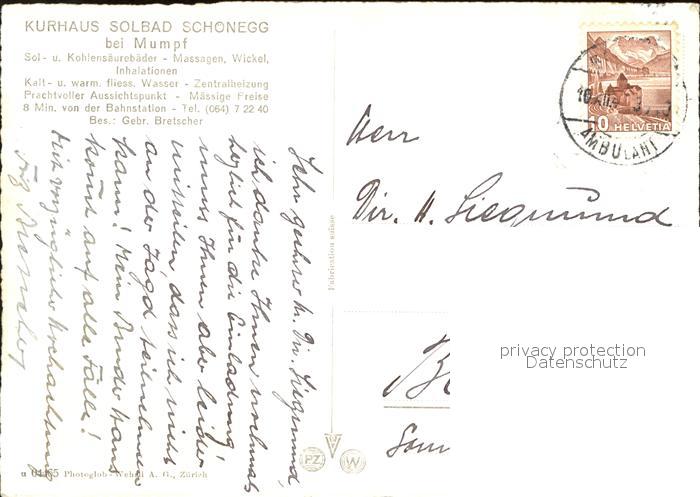 KURHAUS SOLBAD SCHÖNEGG
bei Mumpf
Sol- u. Kohlensäurebäder - Massagen, Wickel,
Inhalationen
Kalt- u. warm. fliess. Wasser - Zentralheizung
Prachtvoller Aussichtspunkt - Mässige Preise
8 Min. von der Bahnstation - Tel. (064) 7 22 40
Bes.: Gebr. Bretscher
Sehr geehrter Hr. Dir. Siegmund,
ich danke Ihnen nochmals
herzlich für die Einladung
muss Ihnen aber leider
mitteilen dass ich nicht
an der Jagd teilnehmen
kann! Mein Bruder Hans
kommt auf alle Fälle!
Mit vorzüglicher Hochachtung
Fabrication suisse
PZ
W
Photoglob-Wehrli A. G., Zürich
10
HELVETIA
AMBULANT
Herr
Dir. H. Siegmund
privacy protection
Datenschutz